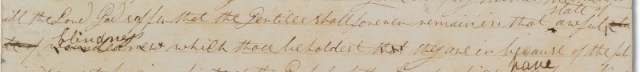 state of
ill the Lord God suffer that the Gentiles shall forever remain in that awful
blindness
which thou beholdest that they are in because of the pl
have